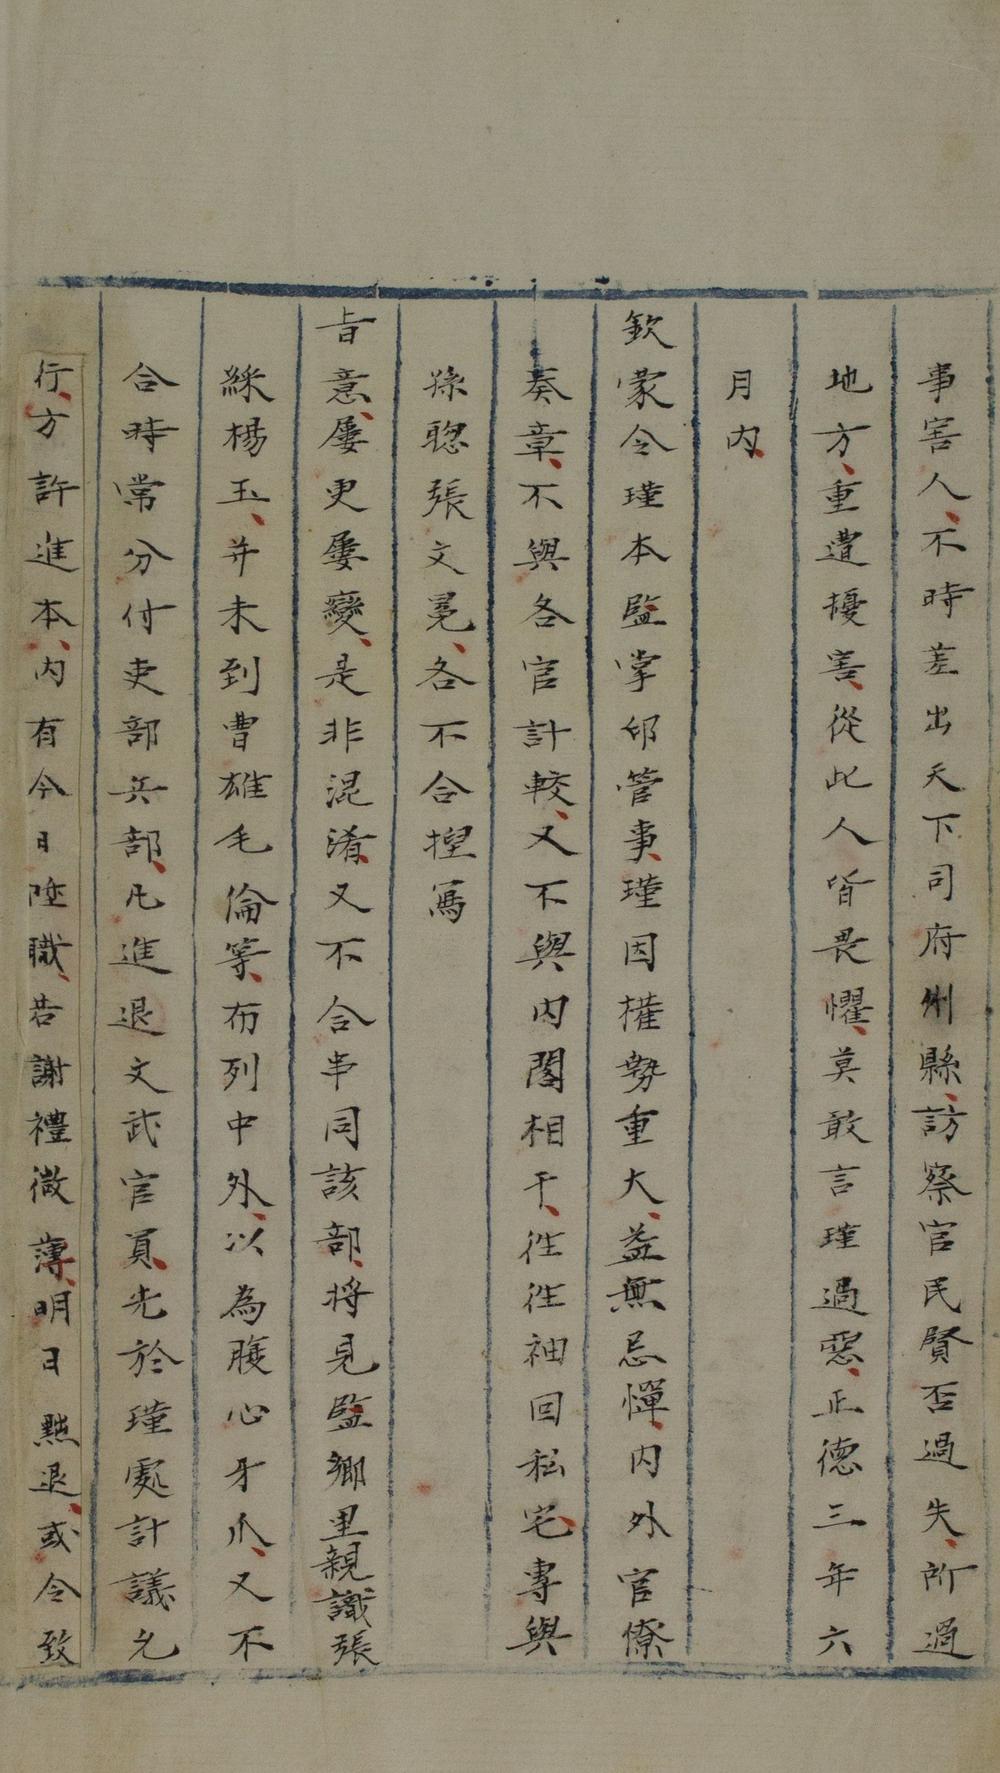 事害人不時差出天下司府州縣訪察官民賢否過失所過
地方重遭擾害從此人皆畏懼莫敢言瑾過惡正德三年六
月內
欽蒙令瑾本監掌印管事瑾因權勢重大益無忌憚內外官僚
奏章不與各官計較又不與內閣相干往往袖回私宅專與
孫聰張文冕各不合捏寫
旨意屢更屢變是非混淆又不合串同該部將見監鄉里親識張
綵楊玉并未到曹雄毛倫等布列中外以為腹心牙爪又不
合時常分付吏部兵部凡進退文武官員先於瑾處計議允
行方許進本內有今日陞職若謝禮微薄明日黜退或令致